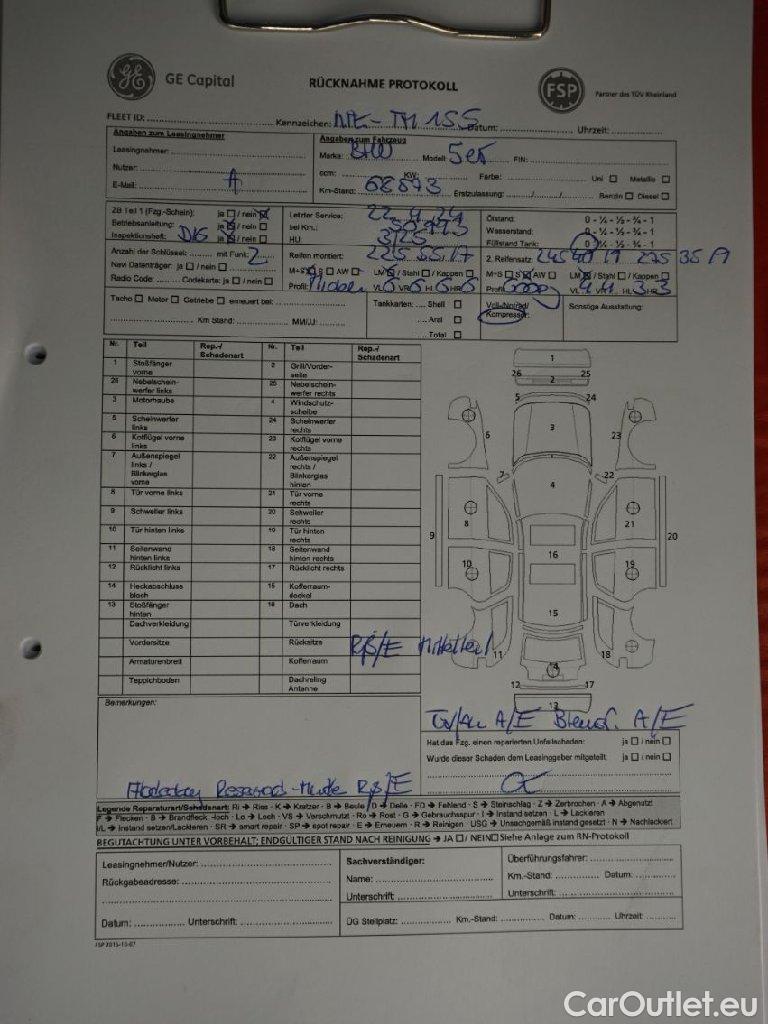 GE GE Capital RÜCKNAHME PROTOKOLL FSP Partner des TÜV Rheinland
FLEET ID: Kennzeichen: Datum: Uhrzeit:
Angaben zum Leasingnehmer Angaben zum Fahrzeug
Leasingnehmer: Marke: BMW Modell: 5er FIN:
Nutzer: ccm: KW: Farbe: Uni Metallic
E-Mail: A Km-Stand: 68873 Erstzulassung: Benzin Diesel
ZB Teil 1 (Fzg.-Schein): ja / nein Letzter Service: Ölstand: 0 - ¼ - ½ - ¾ - 1
Betriebsanleitung: ja / nein bei Km.: Wasserstand: 0 - ¼ - ½ - ¾ - 1
Inspektionsheft: ja / nein HU: 3/25 Füllstand Tank: 0 - ¼ - ½ - ¾ - 1
Anzahl der Schlüssel: mit Funk: 2 Reifen montiert: 225 55 17 2. Reifensatz 245 40 19 275 35 19
Navi Datenträger: ja / nein M+S S AW LM / Stahl / Kappen M+S S AW LM / Stahl / Kappen
Radio Code: Codekarte: ja / nein Profil: VL 6 VR 6 HL 6 HR 6 Profil: VL 4 VR 4 HL 3 HR 3
Tacho Motor Getriebe erneuert bei: Tankkarten: Shell Voll-/Notrad/ Sonstige Ausstattung:
Kompressor:
Km Stand: MM/JJ: Aral
Total
Nr. Teil Rep.-/ Schadenart Nr. Teil Rep.-/ Schadenart
1 Stoßfänger vorne 2 Grill/Vorder-seite
26 Nebelschein-werfer links 25 Nebelschein-werfer rechts
3 Motorhaube 4 Windschutz-scheibe
5 Scheinwerfer links 24 Scheinwerfer rechts
6 Kotflügel vorne links 23 Kotflügel vorne rechts
7 Außenspiegel links / Blinkerglas vorne 22 Außenspiegel rechts / Blinkerglas hinten
8 Tür vorne links 21 Tür vorne rechts
9 Schweller links 20 Schweller rechts
10 Tür hinten links 19 Tür hinten rechts
11 Seitenwand hinten links 18 Seitenwand hinten rechts
12 Rücklicht links 17 Rücklicht rechts
14 Heckabschluss blech 15 Kofferraum-deckel
13 Stoßfänger hinten 16 Dach
Dachverkleidung Türverkleidung
Vordersitze Rücksitze
Armaturenbrett Kofferraum
Teppichboden Dachreling Antenne
1
26 25
2
5 24
6 3 23
7 22
4
8 21
9 16 20
10 19
15
11 18
14
12 17
13
Bemerkungen:
A/E A/E
Hat das Fzg. einen reparierten Unfallschaden: ja / nein
Wurde dieser Schaden dem Leasinggeber mitgeteilt ja / nein
Legende Reparaturart/Schadenart: Ri → Riss · K → Kratzer · B → Beule / D → Delle · FD → Fehlend · S → Steinschlag · Z → Zerbrochen · A → Abgenutzt
F → Flecken · B → Brandfleck · Loch · Lo → Loch · VS → Verschmutzt · Ro → Rost · G → Gebrauchsspur · I → Instand setzen · L → Lackieren
I/L → Instand setzen/Lackieren · SR → smart repair · SP → spot repair · E → Erneuern · R → Reinigen · USG → Unsachgemäß instand gesetzt · N → Nachlackiert
BEGUTACHTUNG UNTER VORBEHALT; ENDGÜLTIGER STAND NACH REINIGUNG → JA / NEIN Siehe Anlage zum RN-Protokoll
Leasingnehmer/Nutzer: Sachverständiger: Überführungsfahrer:
Rückgabeadresse: Name: Km.-Stand: Datum:
Unterschrift: Unterschrift:
Datum: Unterschrift: ÜG Stellplatz: Km.-Stand: Datum: Uhrzeit:
FSP 2015-10-07
CarOutlet.eu